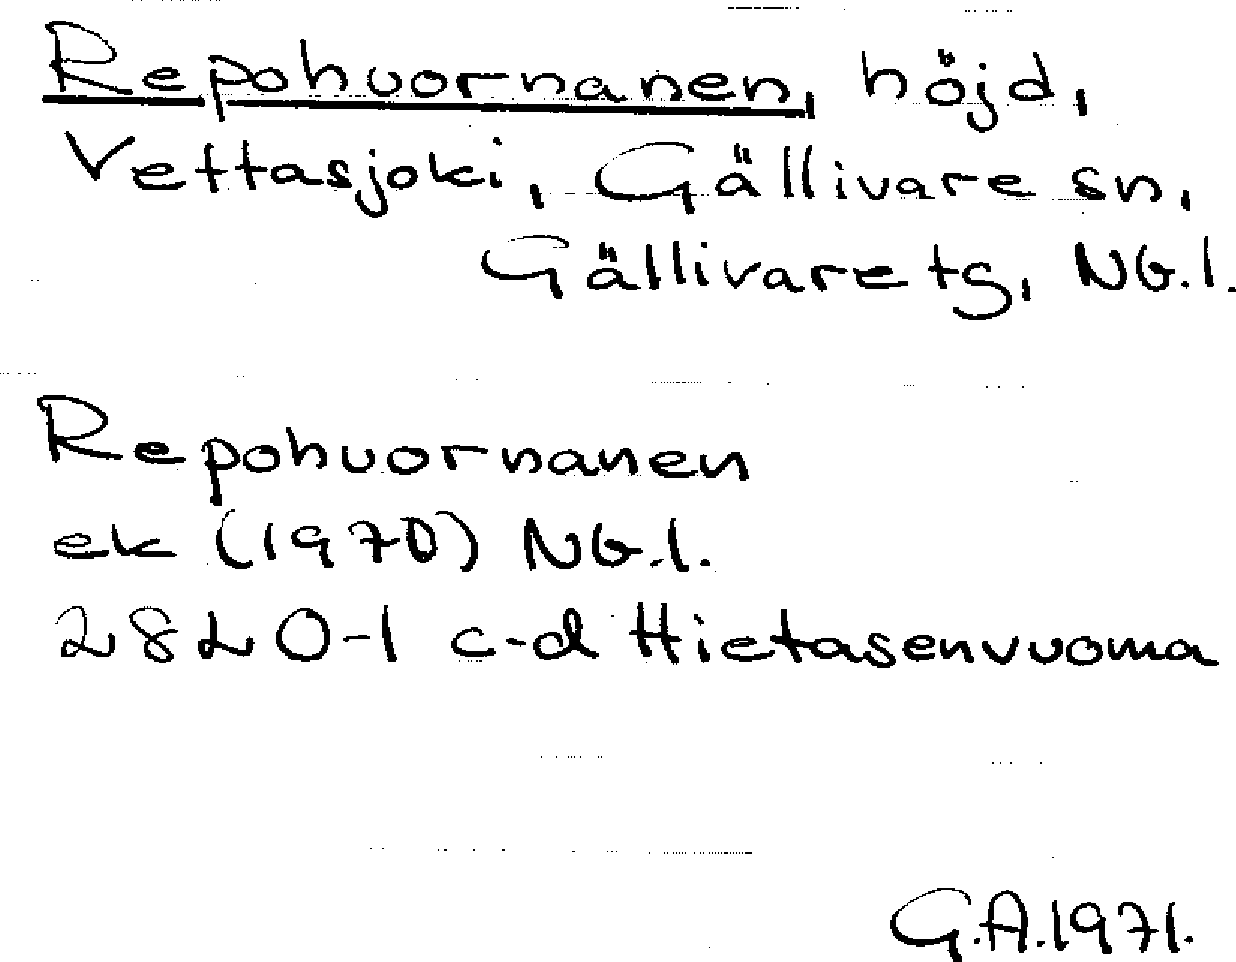 Repohuornanen, höjd,
Vettasjoki, Gällivare sn,
Gällivare tg, NB.l.
Repohuornanen
ek (1970) NB.l.
28L0-1 c-d Hietasenvuoma
G.A.1971.